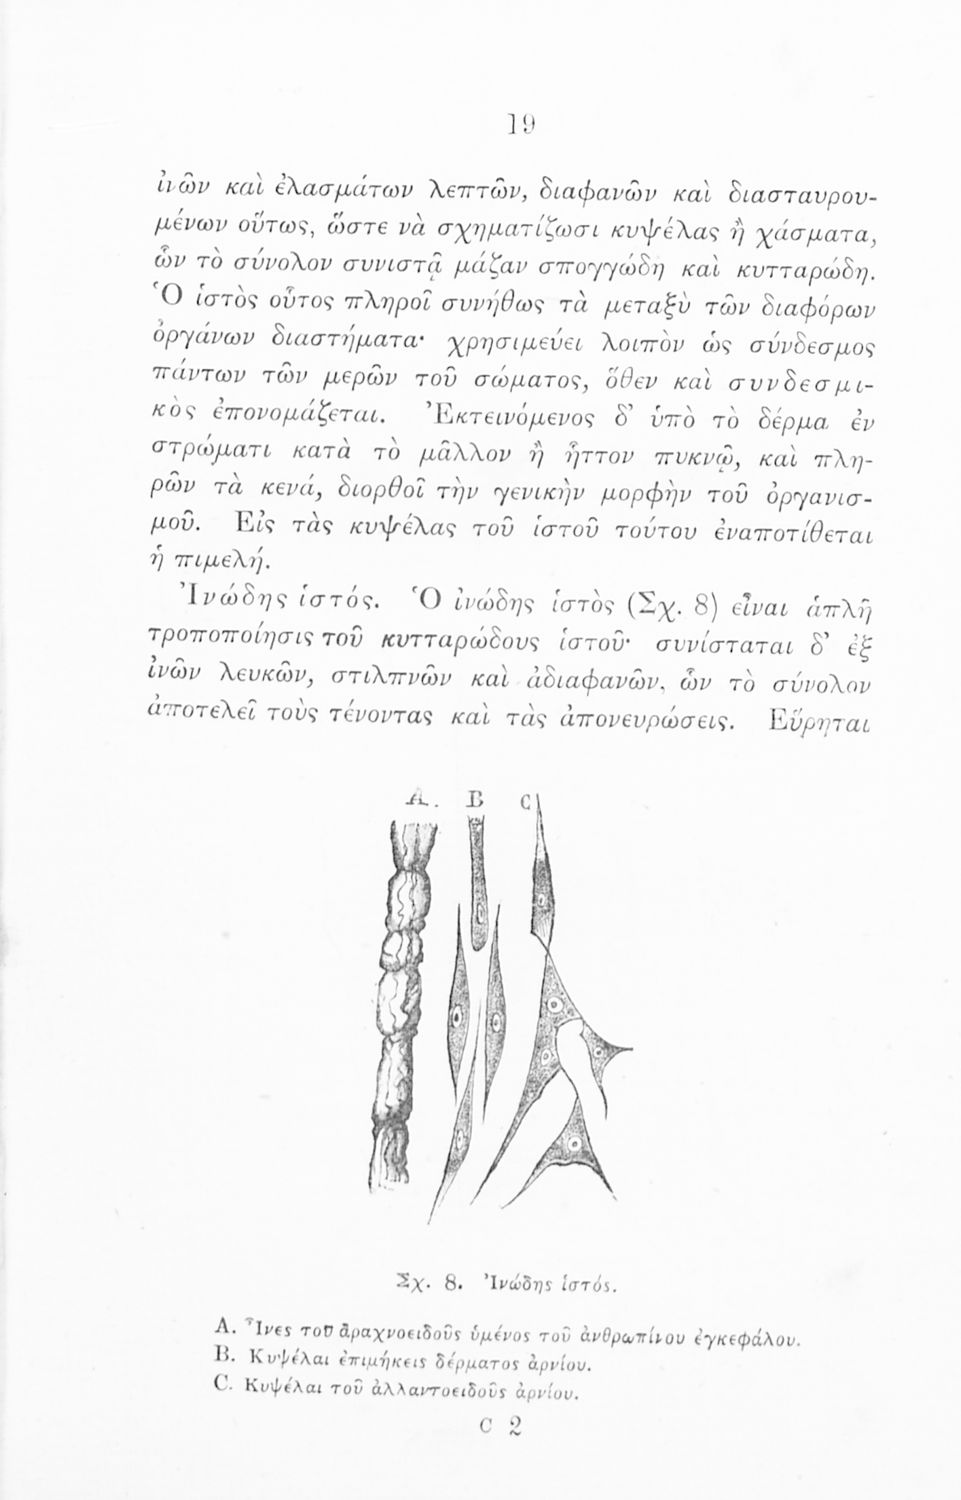 19
ἰνῶν καὶ ἐλασμάτων λεπτῶν, διαφανῶν καὶ διασταυρου-
μένων οὕτως, ὥστε νὰ σχηματίζωσι κυψέλας ἢ χάσματα,
ὧν τὸ σύνολον συνιστᾷ μάζαν σπογγώδη καὶ κυτταρώδη.
Ὁ ἱστὸς οὗτος πληροῖ συνήθως τὰ μεταξὺ τῶν διαφόρων
ὀργάνων διαστήματα· χρησιμεύει λοιπὸν ὡς σύνδεσμος
πάντων τῶν μερῶν τοῦ σώματος, ὅθεν καὶ συνδεσμι-
κὸς ἐπονομάζεται. Ἐκτεινόμενος δ’ ὑπὸ τὸ δέρμα ἐν
στρώματι κατὰ τὸ μᾶλλον ἢ ἧττον πυκνῷ, καὶ πλη-
ρῶν τὰ κενά, διορθοῖ τὴν γενικὴν μορφὴν τοῦ ὀργανισ-
μοῦ. Εἰς τὰς κυψέλας τοῦ ἱστοῦ τούτου ἐναποτίθεται
ἡ πιμελή.
Ἰνώδης ἱστός. Ὁ ἰνώδης ἱστὸς (Σχ. 8) εἶναι ἁπλῆ
τροποποίησις τοῦ κυτταρώδους ἱστοῦ· συνίσταται δ’ ἐξ
ἰνῶν λευκῶν, στιλπνῶν καὶ ἀδιαφανῶν, ὧν τὸ σύνολον
ἀποτελεῖ τοὺς τένοντας καὶ τὰς ἀπονευρώσεις. Εὕρηται
A. B C
Σχ. 8. Ἰνώδης ἱστός.
A. Ἶνες τοῦ ἀραχνοειδοῦς ὑμένος τοῦ ἀνθρωπίνου ἐγκεφάλου.
B. Κυψέλαι ἐπιμήκεις δέρματος ἀρνίου.
C. Κυψέλαι τοῦ ἀλλαντοειδοῦς ἀρνίου.
C 2